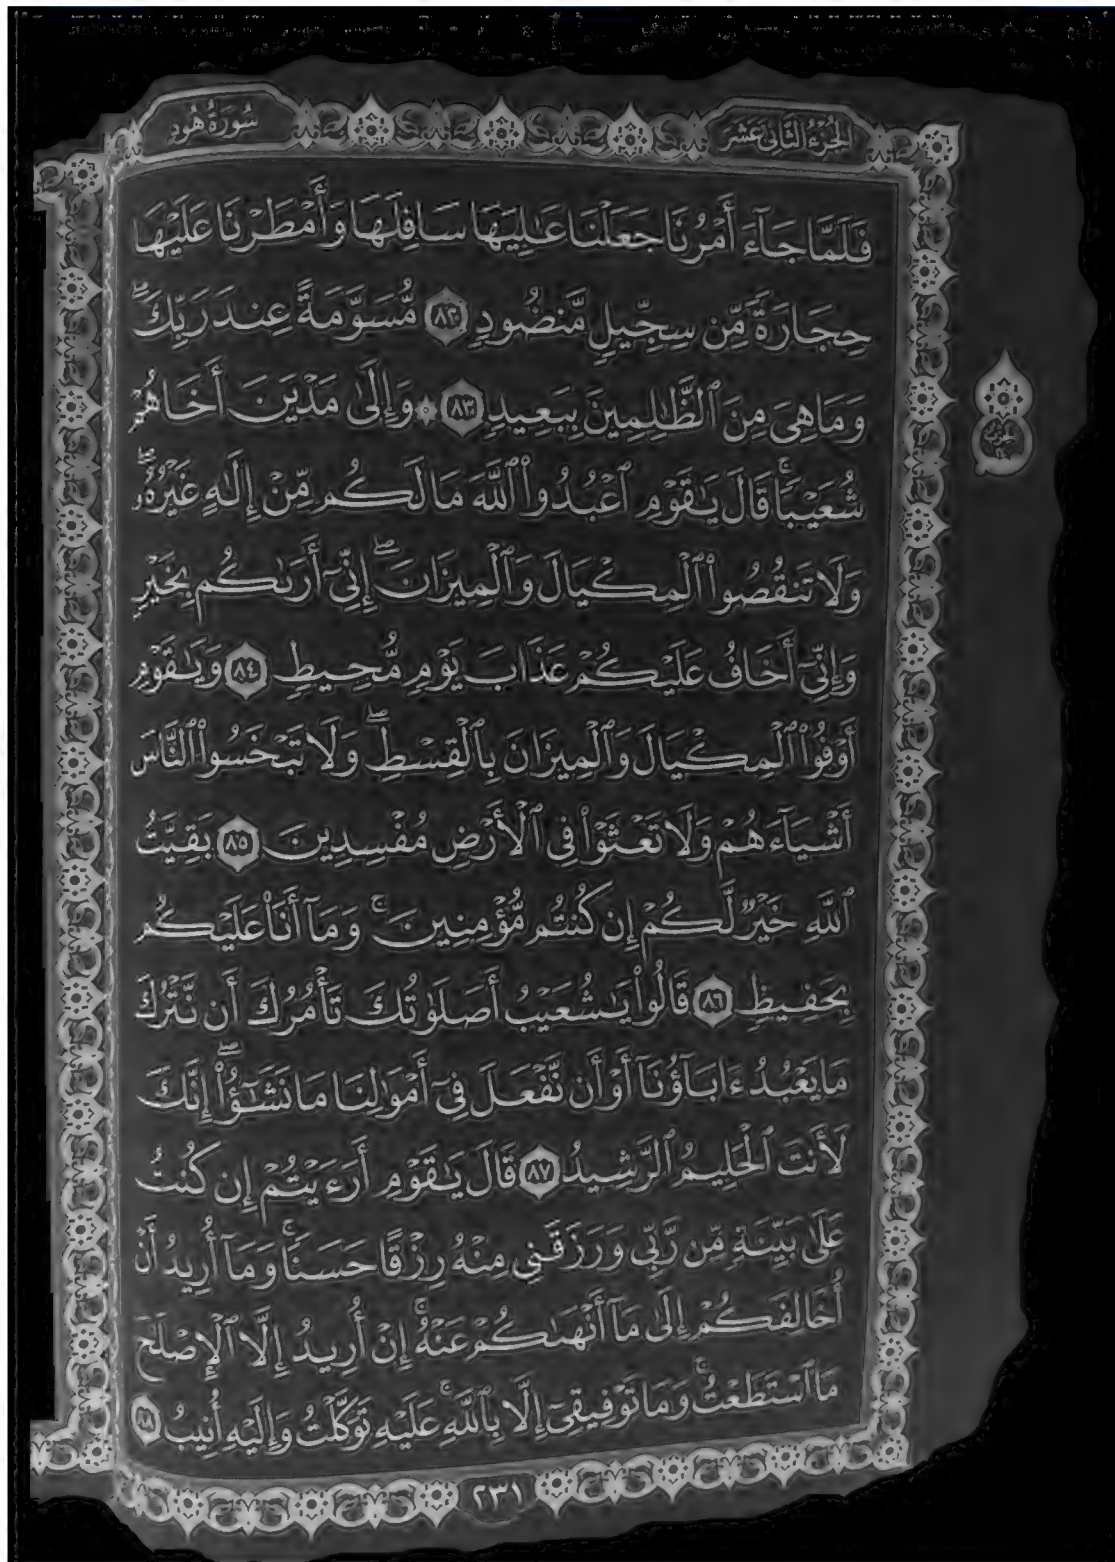 الجزء الثاني عشر
سورة هود
فَلَمَّا جَآءَ أَمْرُنَا جَعَلْنَا عَٰلِيَهَا سَافِلَهَا وَأَمْطَرْنَا عَلَيْهَا
حِجَارَةً مِّن سِجِّيلٍ مَّنضُودٍ ٨٢ مُّسَوَّمَةً عِندَ رَبِّكَۖ
وَمَا هِىَ مِنَ ٱلظَّٰلِمِينَ بِبَعِيدٍ ٨٣ ۞ وَإِلَىٰ مَدْيَنَ أَخَاهُمْ
شُعَيْبًاۚ قَالَ يَٰقَوْمِ ٱعْبُدُوا۟ ٱللَّهَ مَا لَكُم مِّنْ إِلَٰهٍ غَيْرُهُۥۖ
وَلَا تَنقُصُوا۟ ٱلْمِكْيَالَ وَٱلْمِيزَانَۖ إِنِّىٓ أَرَىٰكُم بِخَيْرٍ
وَإِنِّىٓ أَخَافُ عَلَيْكُمْ عَذَابَ يَوْمٍ مُّحِيطٍ ٨٤ وَيَٰقَوْمِ
أَوْفُوا۟ ٱلْمِكْيَالَ وَٱلْمِيزَانَ بِٱلْقِسْطِۖ وَلَا تَبْخَسُوا۟ ٱلنَّاسَ
أَشْيَآءَهُمْ وَلَا تَعْثَوْا۟ فِى ٱلْأَرْضِ مُفْسِدِينَ ٨٥ بَقِيَّتُ
ٱللَّهِ خَيْرٌ لَّكُمْ إِن كُنتُم مُّؤْمِنِينَۚ وَمَآ أَنَا۠ عَلَيْكُم
بِحَفِيظٍ ٨٦ قَالُوا۟ يَٰشُعَيْبُ أَصَلَوٰتُكَ تَأْمُرُكَ أَن نَّتْرُكَ
مَا يَعْبُدُ ءَابَآؤُنَآ أَوْ أَن نَّفْعَلَ فِىٓ أَمْوَٰلِنَا مَا نَشَٰٓؤُا۟ۖ إِنَّكَ
لَأَنتَ ٱلْحَلِيمُ ٱلرَّشِيدُ ٨٧ قَالَ يَٰقَوْمِ أَرَءَيْتُمْ إِن كُنتُ
عَلَىٰ بَيِّنَةٍ مِّن رَّبِّى وَرَزَقَنِى مِنْهُ رِزْقًا حَسَنًاۚ وَمَآ أُرِيدُ أَنْ
أُخَالِفَكُمْ إِلَىٰ مَآ أَنْهَىٰكُمْ عَنْهُۚ إِنْ أُرِيدُ إِلَّا ٱلْإِصْلَٰحَ
مَا ٱسْتَطَعْتُۚ وَمَا تَوْفِيقِىٓ إِلَّا بِٱللَّهِۚ عَلَيْهِ تَوَكَّلْتُ وَإِلَيْهِ أُنِيبُ ٨٨
حزب
٢٣١